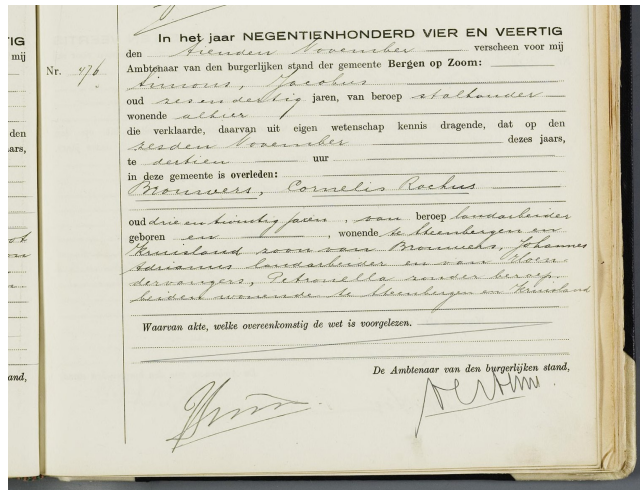 TIG
mij
den
ars,
and,
In het jaar NEGENTIENHONDERD VIER EN VEERTIG
den tienden November verscheen voor mij
Nr. 476
Ambtenaar van den burgerlijken stand der gemeente Bergen op Zoom:
Simons, Jacobus
oud zesendertig jaren, van beroep stalhouder
wonende alhier
die verklaarde, daarvan uit eigen wetenschap kennis dragende, dat op den
zesden November dezes jaars,
te dertien uur
in deze gemeente is overleden:
Brouwers, Cornelis Rochus
oud drie en twintig jaren, van beroep landarbeider
geboren en , wonende te Steenbergen en
Kruisland zoon van Brouwers, Johannes
Adrianus landarbeider en van
Petronella zonder beroep,
beiden wonende te Steenbergen en Kruisland
Waarvan akte, welke overeenkomstig de wet is voorgelezen.
De Ambtenaar van den burgerlijken stand,